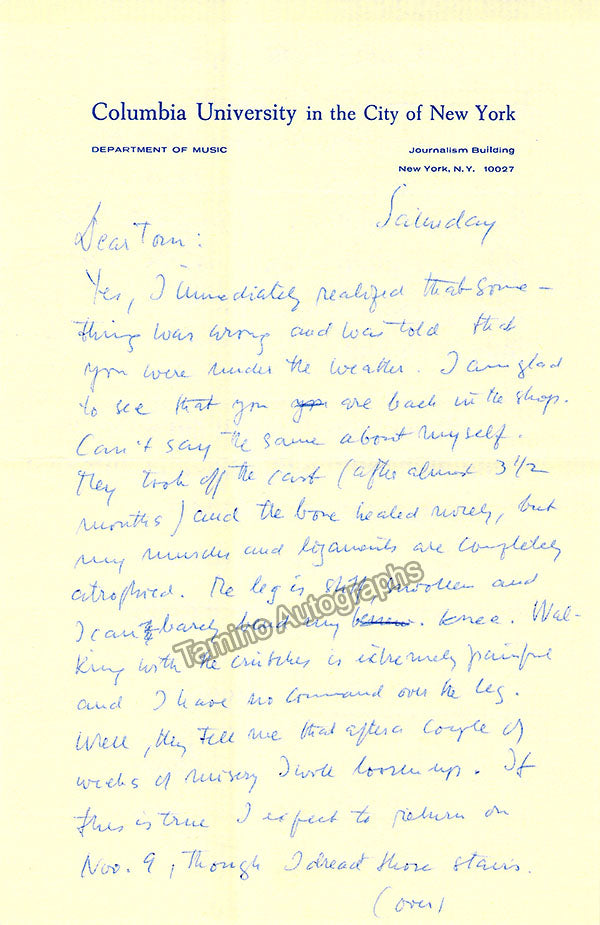 Columbia University in the City of New York
DEPARTMENT OF MUSIC
Journalism Building
New York, N.Y. 10027
Saturday
Dear Tom:
Yes, I immediately realized that some-
thing was wrong and was told that
you were under the weather. I am glad
to see that you are back in the shop.
Can't say the same about myself.
They took off the cast (after almost 3 1/2
months) and the bone healed nicely, but
my muscles and ligaments are completely
atrophied. The leg is stiff, swollen and
I can barely bend my knee. Wal-
king with the crutches is extremely painful
and I have no command over the leg.
Well, they tell me that after a couple of
weeks of misery I will loosen up. If
this is true I expect to return on
Nov. 9, though I dread those stairs.
(over)
Tamino Autographs